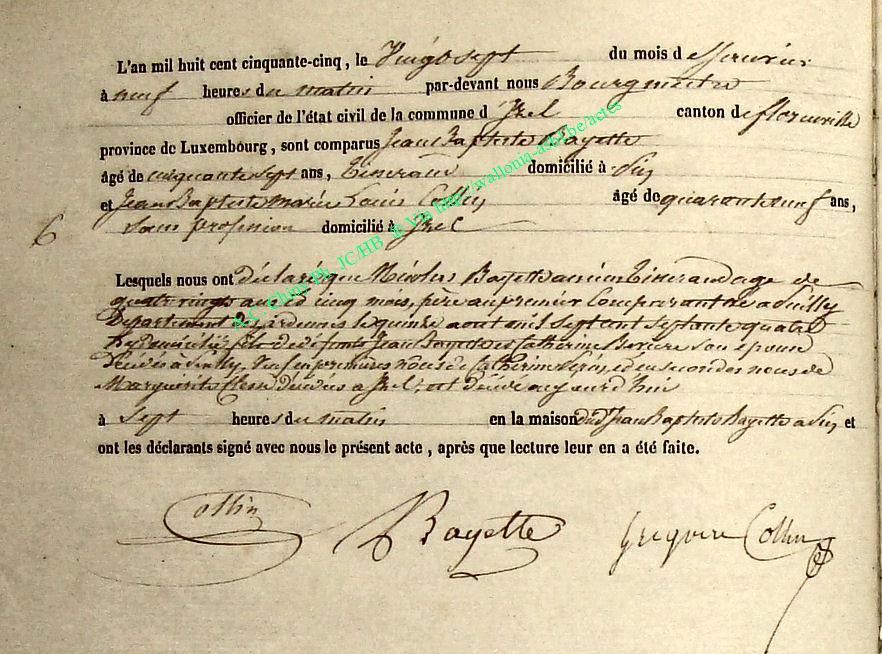 L'an mil huit cent cinquante-cinq, le Vingt sept du mois de fevrier
à neuf heures du matin par-devant nous Bourgmestre
officier de l'état civil de la commune d'Izel canton de florenville
province de Luxembourg, sont comparus Jean Baptiste Bayette
âgé de cinquante sept ans, tisserand domicilié à
et Jean Baptiste marie Louis Collin âgé de quarante neuf ans,
6 Sans profession domicilié à Izel
Lesquels nous ont déclaré que Nicolas Bayette ancien tisserand age de
quatre vingt ans et cinq mois, père au premier Comparant né a Suilly
Departement des ardennes le quinze aout mil sept cent septante quatre
fils de defunts Jean Bayette et Catherine son épouse
Décédés à Suilly, Veuf en premieres noces de Catherine et en secondes noces de
Marguerite décédée a Izel, est décédé aujourd'hui
à Sept heures du matin en la maison dud Jean Baptiste Bayette a et
ont les déclarants signé avec nous le présent acte, après que lecture leur en a été faite.
Collin Bayette Gregoire Collin
A.C. Chiny Ph. JC.HB Via http://wallonia-asbl.be/actes